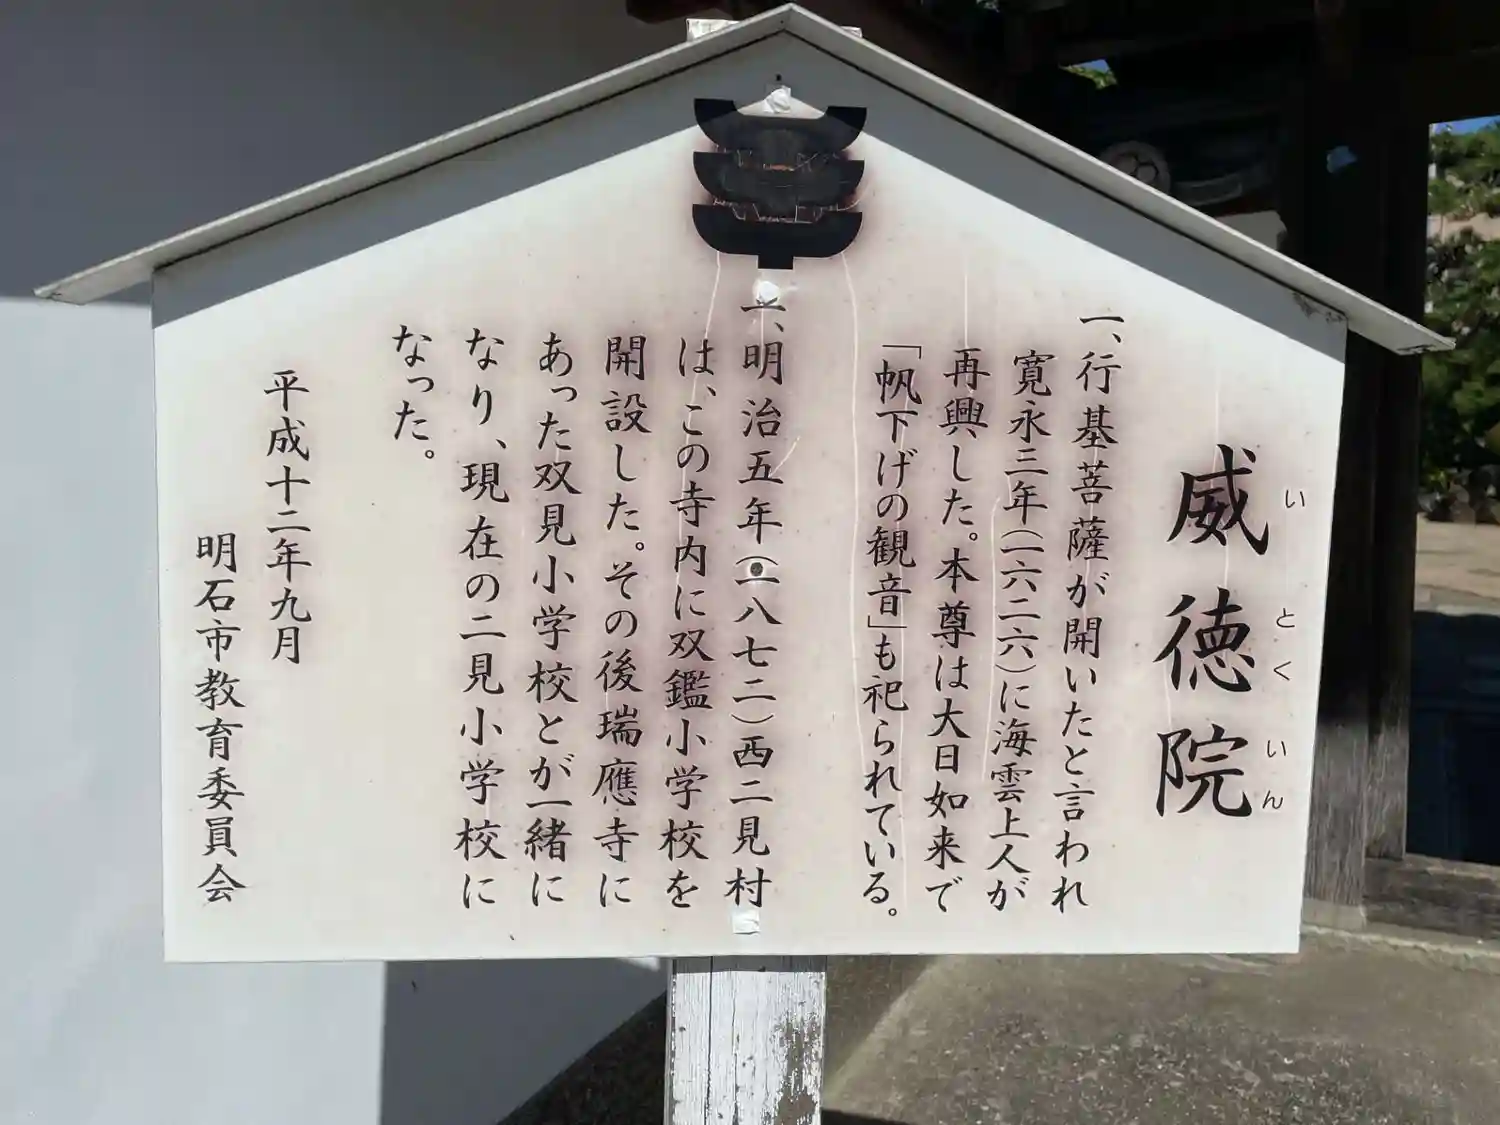 威徳院
いとくいん
一、行基菩薩が開いたと言われ
寛永三年(一六二六)に海雲上人が
再興した。本尊は大日如来で
「帆下げの観音」も祀られている。
一、明治五年(一八七二)西二見村
は、この寺内に双鑑小学校を
開設した。その後瑞應寺に
あった双見小学校とが一緒に
なり、現在の二見小学校に
なった。
平成十二年九月
明石市教育委員会